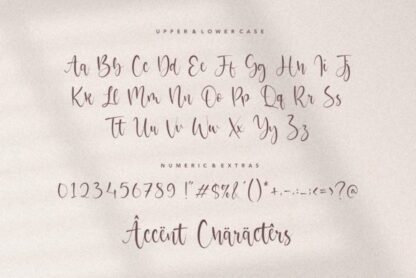 UPPER & LOWERCASE
Aa Bb Cc Dd Ee Ff Gg Hh Ii Jj
Kk Ll Mm Nn Oo Pp Qq Rr Ss
Tt Uu Vv Ww Xx Yy Zz
NUMERIC & EXTRAS
0123456789 !"#$%&'()*+,-.:;_;<=>?@
Âccënt Chäräctêrs